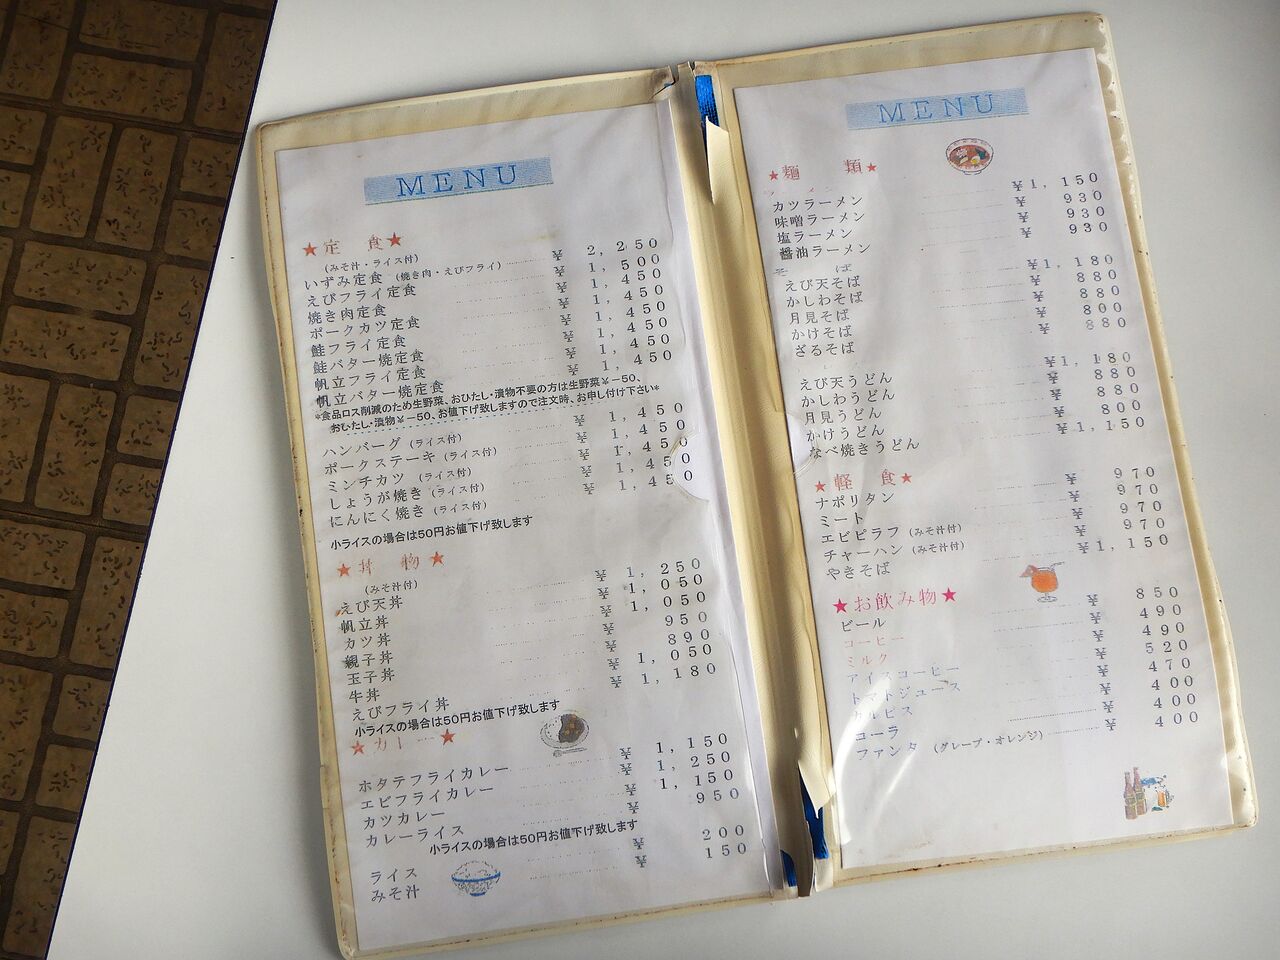 MENU
★定 食★
(みそ汁・ライス付)
いずみ定食 (焼き肉・えびフライ) ¥2,250
えびフライ定食 ¥1,500
焼き肉定食 ¥1,450
ポークカツ定食 ¥1,450
鮭フライ定食 ¥1,450
鮭バター焼定食 ¥1,450
帆立フライ定食 ¥1,450
帆立バター焼定食 ¥1,450
*食品ロス削減のため生野菜、おひたし・漬物不要の方は生野菜¥-50、
おひたし・漬物¥-50、お値下げ致しますので注文時、お申し付け下さい*
ハンバーグ (ライス付) ¥1,450
ポークステーキ (ライス付) ¥1,450
ミンチカツ (ライス付) ¥1,450
しょうが焼き (ライス付) ¥1,450
にんにく焼き (ライス付) ¥1,450
小ライスの場合は50円お値下げ致します
★丼 物★
(みそ汁付)
えび天丼 ¥1,250
帆立丼 ¥1,050
カツ丼 ¥1,050
親子丼 ¥950
玉子丼 ¥890
牛丼 ¥1,050
えびフライ丼 ¥1,180
小ライスの場合は50円お値下げ致します
★カレー★
ホタテフライカレー ¥1,150
エビフライカレー ¥1,250
カツカレー ¥1,150
カレーライス ¥950
小ライスの場合は50円お値下げ致します
ライス ¥200
みそ汁 ¥150
MENU
★麺 類★
カツラーメン ¥1,150
味噌ラーメン ¥930
塩ラーメン ¥930
醤油ラーメン ¥930
そ ば
えび天そば ¥1,180
かしわそば ¥880
月見そば ¥880
かけそば ¥800
ざるそば ¥880
えび天うどん ¥1,180
かしわうどん ¥880
月見うどん ¥880
かけうどん ¥800
なべ焼きうどん ¥1,150
★軽 食★
ナポリタン ¥970
ミート ¥970
エビピラフ (みそ汁付) ¥970
チャーハン (みそ汁付) ¥970
やきそば ¥1,150
★お飲み物★
ビール ¥850
コーヒー ¥490
ミルク ¥490
アイスコーヒー ¥520
トマトジュース ¥470
カルピス ¥400
コーラ ¥400
ファンタ (グレープ・オレンジ) ¥400